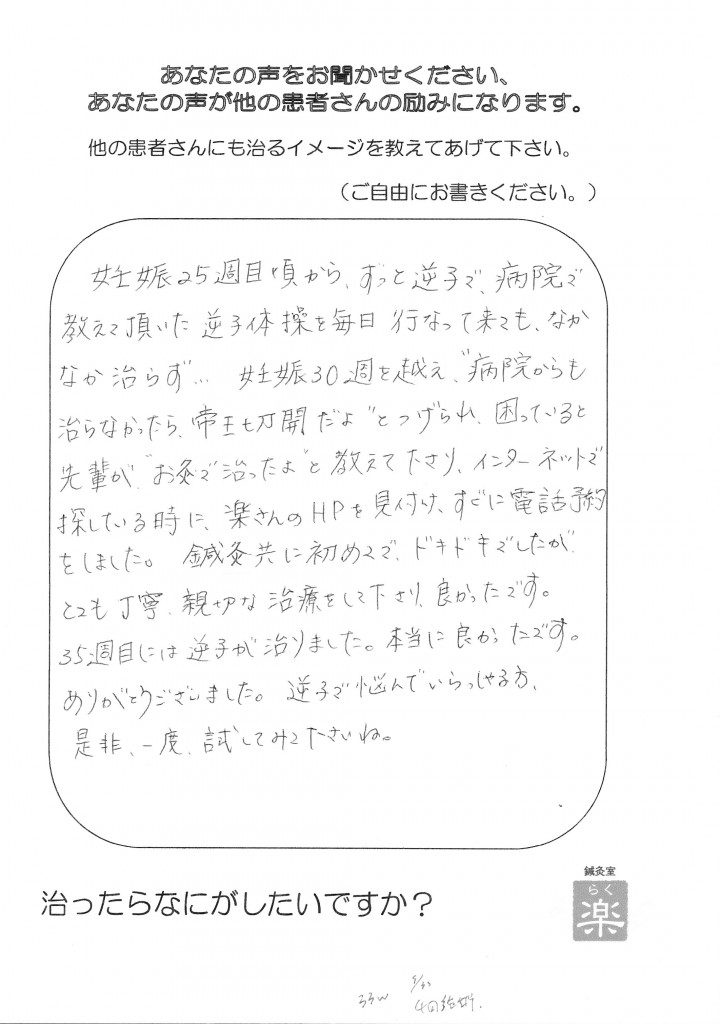 あなたの声をお聞かせください、
あなたの声が他の患者さんの励みになります。
他の患者さんにも治るイメージを教えてあげて下さい。
（ご自由にお書きください。）
妊娠25週目頃から、ずっと逆子で、病院で
教えて頂いた逆子体操を毎日 行なって来ても、なか
なか治らず… 妊娠30週を越え、"病院からも
治らなかったら、帝王切開だよ"とつげられ、困っていると
先輩が、"お灸で治ったよ"と教えて下さり、インターネットで
探している時に、楽さんのHPを見付け、すぐに電話予約
をしました。 鍼灸共に初めてで、ドキドキでしたが、
とても丁寧、親切な治療をして下さり、良かったです。
35週目には逆子が治りました。本当に良かったです。
ありがとうございました。 逆子で悩んでいらっしゃる方、
是非、一度、試してみて下さいね。
治ったらなにがしたいですか？
鍼灸室
らく
楽
33w
4回